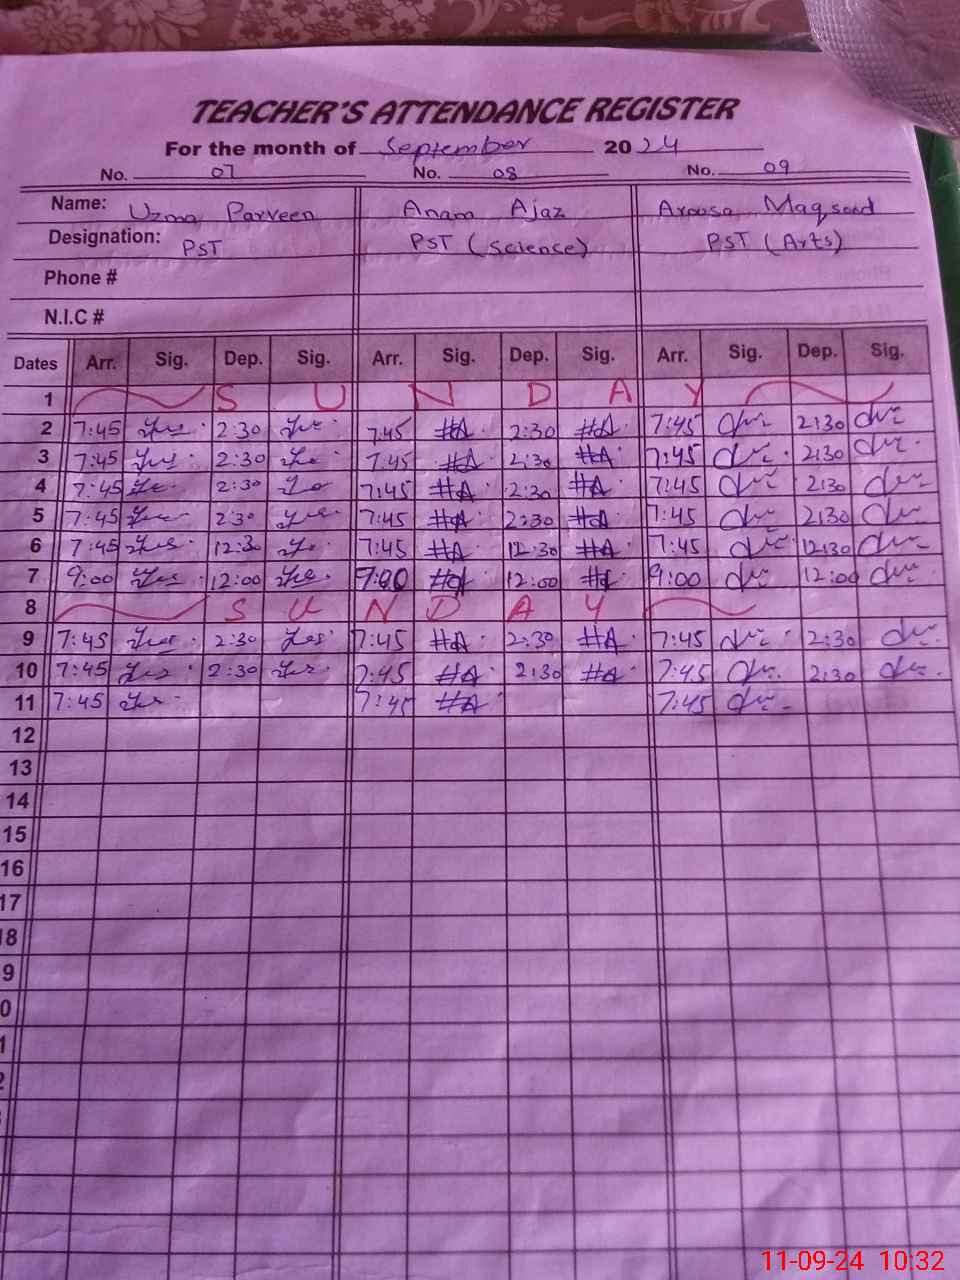 TEACHER'S ATTENDANCE REGISTER
For the month of September 2024
No. 07 No. 08 No. 09
Name: Uzma Parveen Anam Ajaz Aroosa Maqsood
Designation: PST PST (Science) PST (Arts)
Phone #
N.I.C #
Dates Arr. Sig. Dep. Sig. Arr. Sig. Dep. Sig. Arr. Sig. Dep. Sig.
1 SUNDAY
2 7:45 2:30 7:45 2:30 7:45 2:30
3 7:45 2:30 7:45 2:30 7:45 2:30
4 7:45 2:30 7:45 2:30 7:45 2:30
5 7:45 2:30 7:45 2:30 7:45 2:30
6 7:45 12:30 7:45 12:30 7:45 12:30
7 9:00 12:00 9:00 12:00 9:00 12:00
8 SUNDAY
9 7:45 2:30 7:45 2:30 7:45 2:30
10 7:45 2:30 7:45 2:30 7:45 2:30
11 7:45 7:45 7:45
12
13
14
15
16
17
18
9
0
1
2
11-09-24 10:32